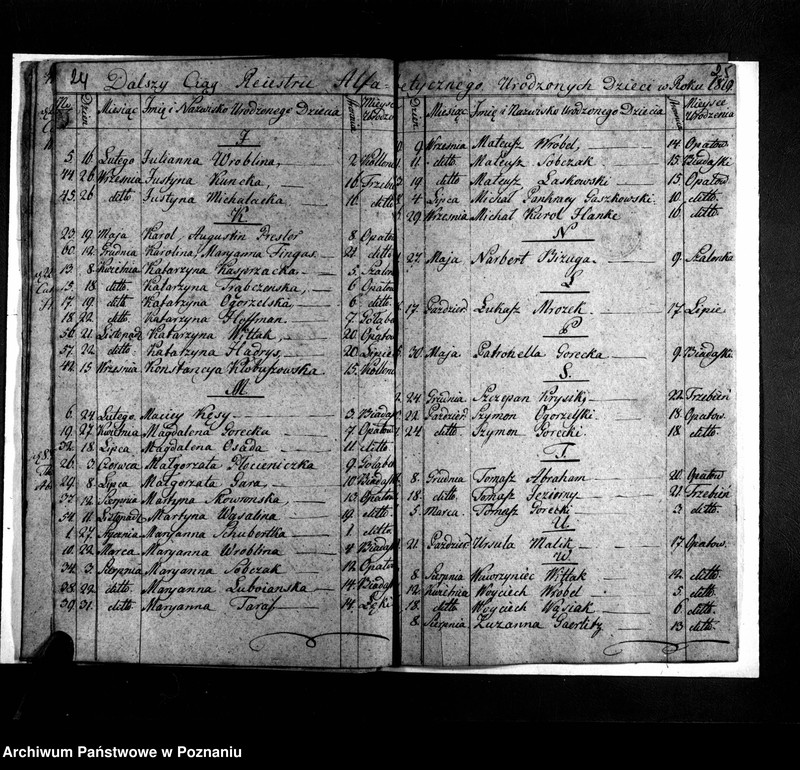 24 Dalszy Ciąg Reiestru Alfa-
Dzień Miesiąc Imię i Nazwisko Urodzonego Dziecia Stronica Mieysce Urodze
J
5 16 Lutego Julianna Wroblina, 2 Kollon
44 26 Wrzesnia Justyna Kuncka, 16 Trzebi
45 26 ditto Justyna Michalacka 16 ditto
K
23 19 Maja Karol Augustin Presler 8 Opato
60 12 Grudnia Karolina Maryanna Fingas 21 ditto
13 8 Kwietnia Katarzyna Kasprzacka 5 Szalon
15 18 ditto Katarzyna Trąbczenska, 6 Opatow
17 19 ditto Katarzyna Ogorzelska 6 ditto
18 22 ditto Katarzyna Hoffman 7 Gołąbo
56 21 Listopad Katarzyna Witłak, 20 Opatow
57 22 ditto Katarzyna Hadrys, 20 Lipie
42 15 Wrzesnia Konstancyja Kłobuszowska 15 Kollon
M.
6 24 Lutego Maciey Kęsy 3 Biadas
19 27 Kwietnia Magdalena Gorecka 7 Opatow
32 18 Lipca Magdalena Osada 11 ditto
26 3 Czerwca Małgorzata Płocieniczka 9 Gołąbo
29 8 Lipca Małgorzata Gara 10 Biadas
37 12 Sierpnia Martyna Skowronska, 13 Opatow
54 11 Listopad Martyna Wąsalina 19 ditto
1 27 Stycznia Maryanna Schubertka 1 ditto
10 22 Marca Maryanna Wroblina 4 Biadas
34 3 Sierpnia Maryanna Sobczak 12 Opato
38 22 ditto Maryanna Luboianska 14 Biadas
39 31 ditto Maryanna Taras 14 Łęki
25
betycznego Urodzonych Dzieci w Roku 1819
Dzień Miesiąc Imię i Nazwisko Urodzonego Dziecia Stronica Mieysce Urodzenia
9 Wrzesnia Mateusz Wrobel, 14 Opatow
11 ditto Mateusz Sobczak 15 Biadaſki
19 ditto Mateusz Laskowski 15 Opatow
4 Lipca Michał Pankracy Gaszkowski 10 ditto
29 Wrzesnia Michał Karol Hanke 16 ditto
N
27 Maja Narbert Bizuga 9 Szalonka
Ł
17 Paździer Łukasz Mrozek 17 Lipie
P
30 Maja Patronella Gorecka 9 Biadaſki
S.
24 Grudnia Szczepan Krysik, 22 Trzebień
22 Paździer Szymon Ogorzelski 18 Opatow
24 ditto Szymon Gorecki 18 ditto
T.
8 Grudnia Tomasz Abraham 20 Opatow
18 ditto Tomasz Jeziorny 21 Trzebień
5 Marca Tomasz Gorecki 3 ditto
U
21 Paździer Ursula Malik 17 Opatow
W
8 Sierpnia Wawrzyniec Witłak 12 ditto
12 Kwietnia Woyciech Wrobel 5 ditto
18 ditto Woyciech Wąsiak 6 ditto
8 Sierpnia Zuzanna Gaerlitz 13 ditto
Archiwum Państwowe w Poznaniu